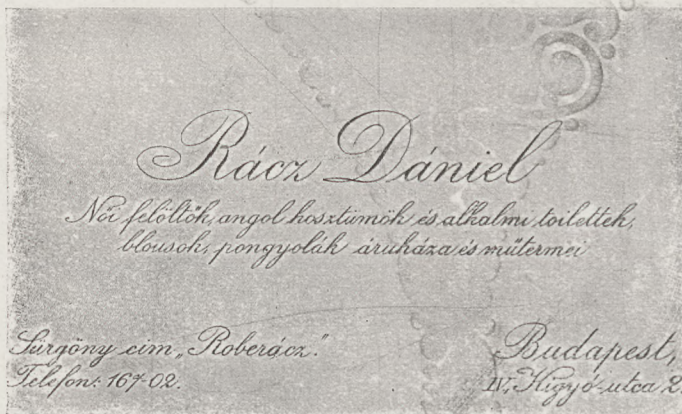 Rácz Dániel
Női felöltők, angol kosztümök és alkalmi toilettek,
blousok, pongyolák áruháza és műtermei
Sürgöny cim „Roberácz."
Telefon: 167-02.
Budapest,
IV, Kigyó-utca 2.